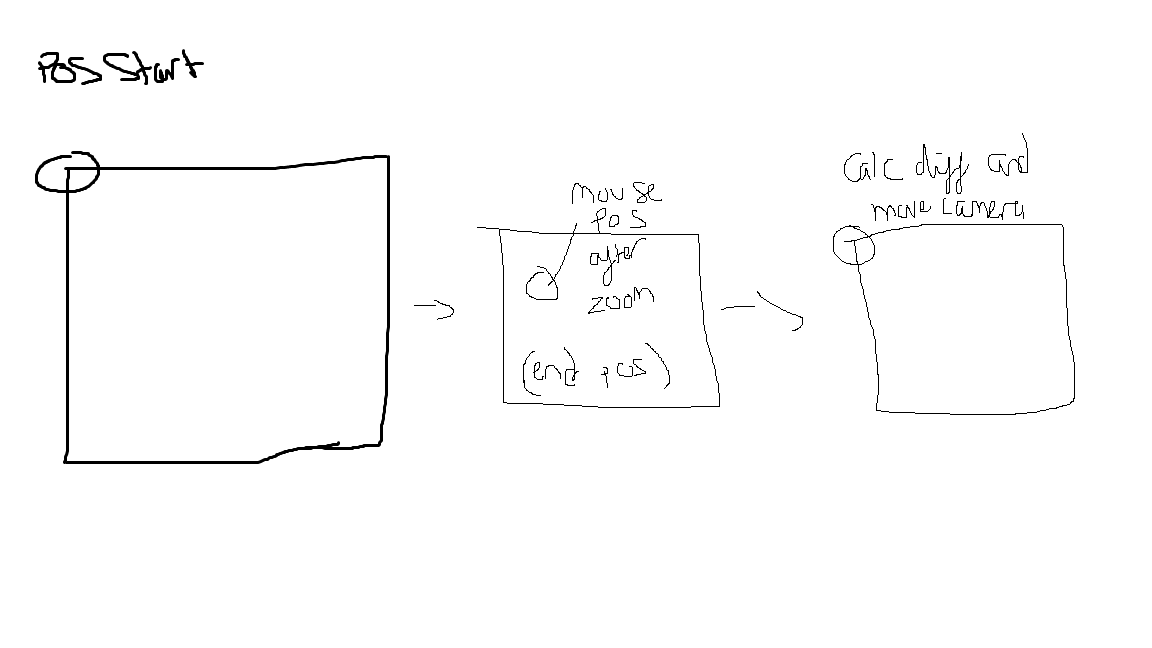 Pos Start
mouse
pos
after
zoom
(end pos)
Calc diff and
move camera